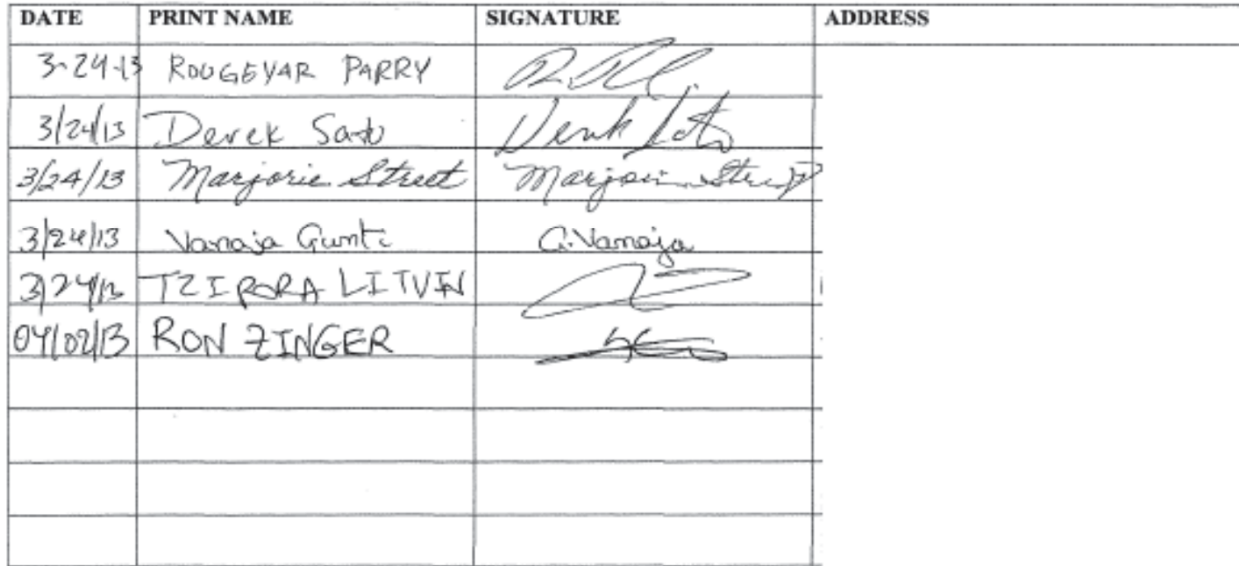 DATE PRINT NAME SIGNATURE ADDRESS
3-24-13 ROUGEYAR PARRY
3/24/13 Derek Sato
3/24/13 Marjorie Street Marjorie Street
3/24/13 Vanaja Gunti G.Vanaja
3/24/13 TZIPORA LITVIN
04/02/13 RON ZINGER